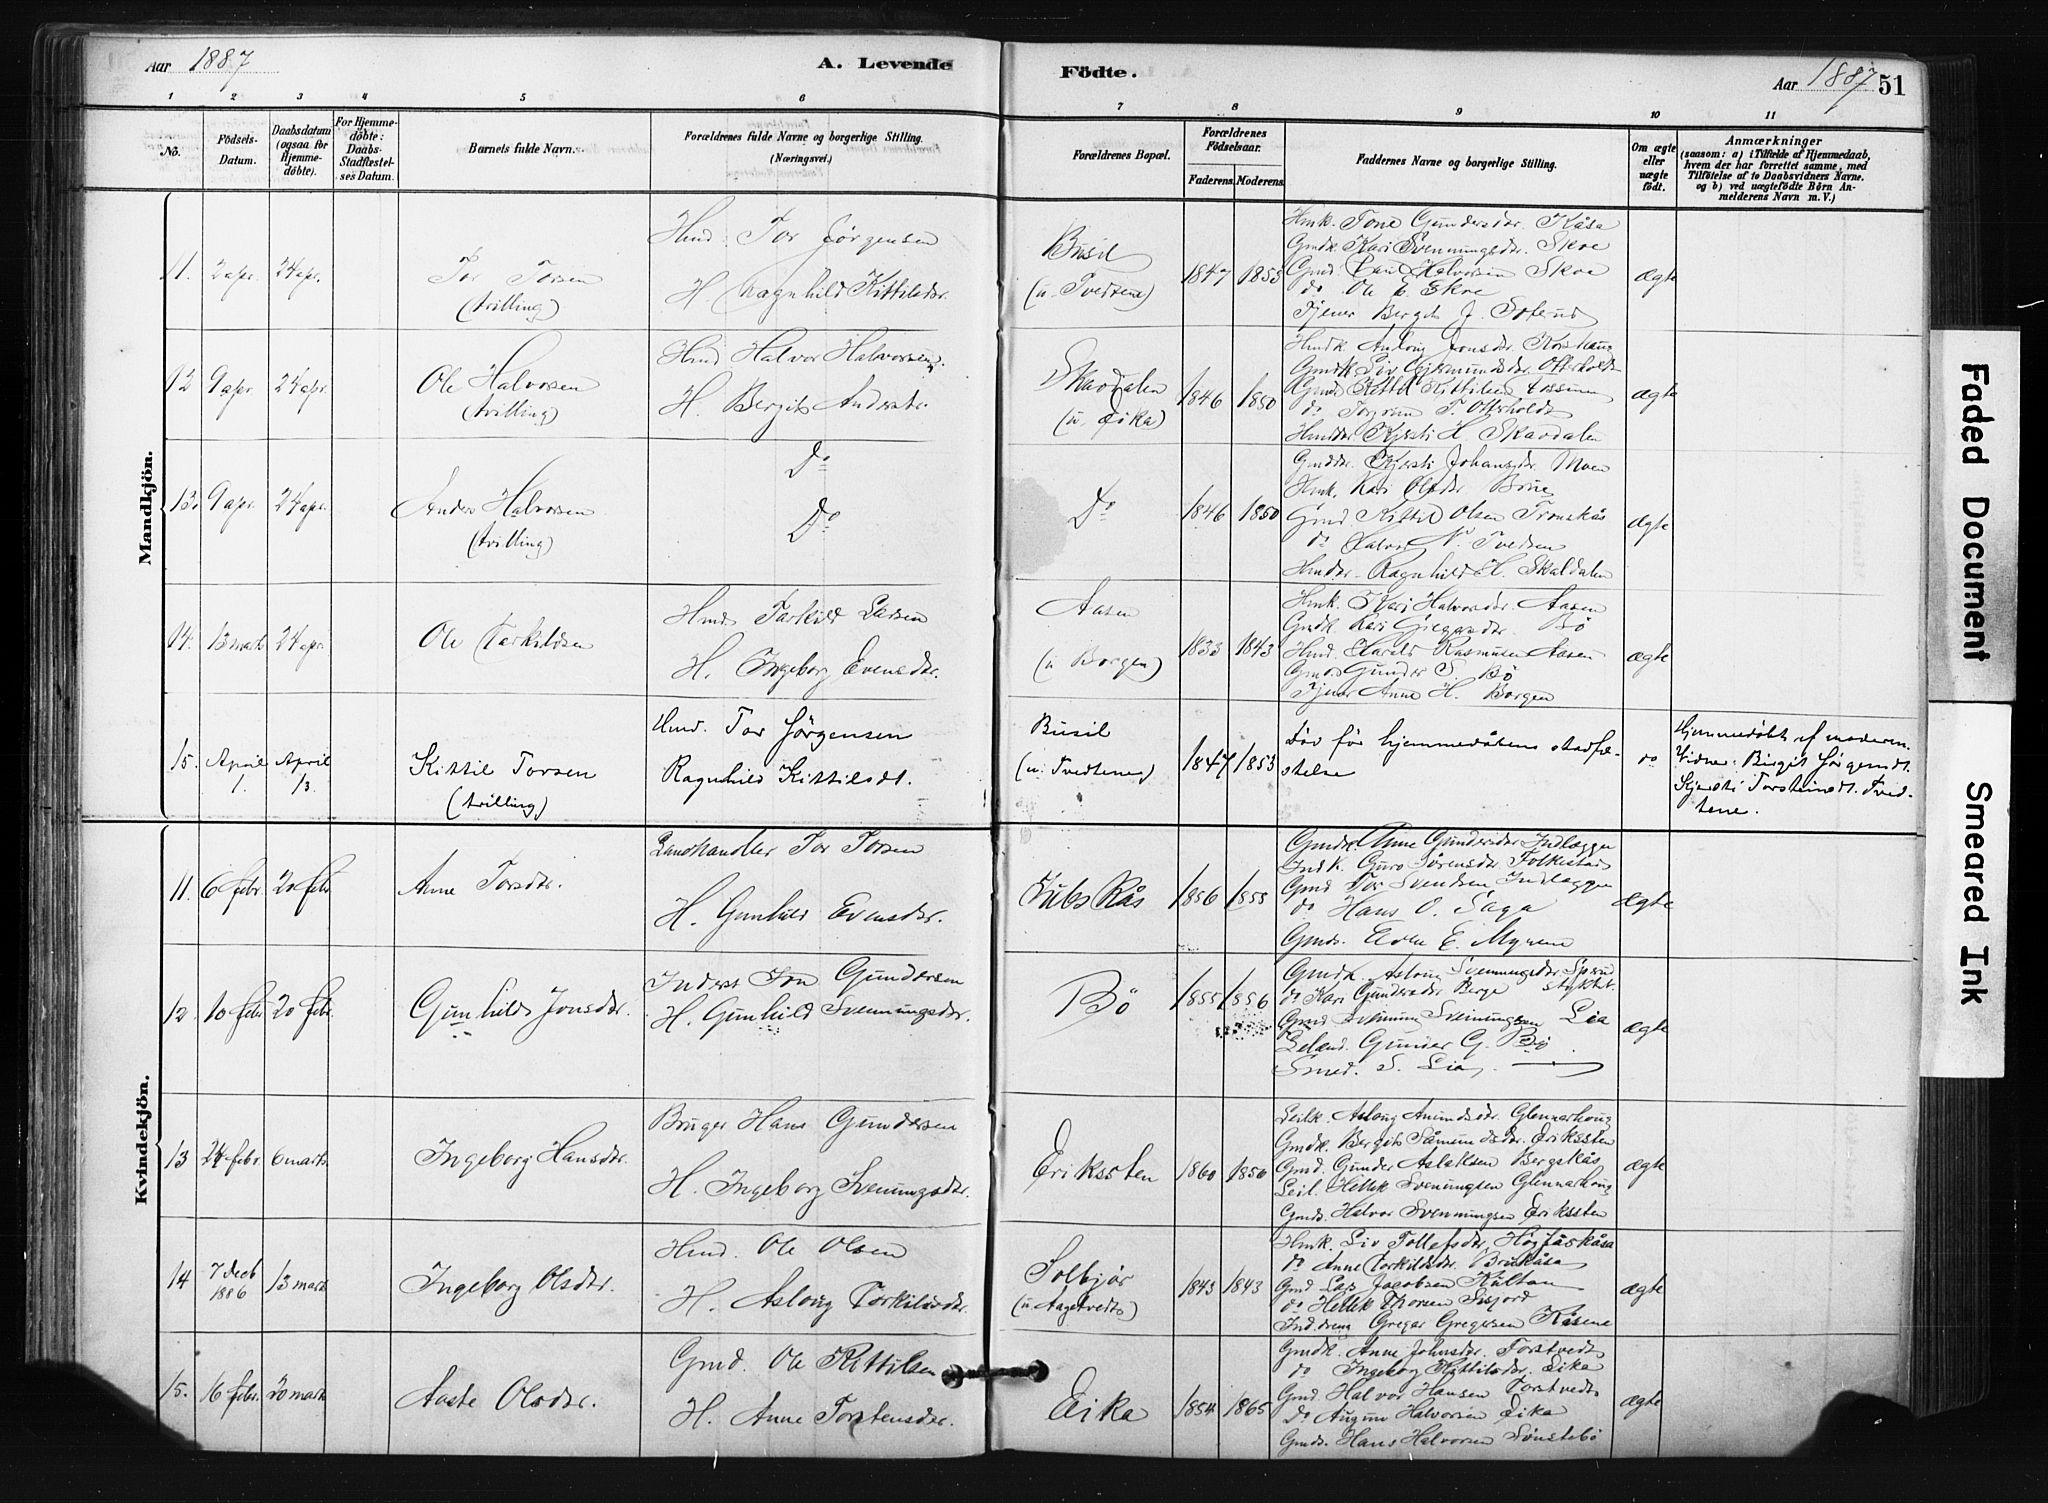 Aar 1887
A. Levende Födte.
Aar 1887 51
1 2 3 4 5 6 7 8 9 10 11
No.
Födsels-Datum.
Daabsdatum (ogsaa for Hjemme-døbte).
For Hjemme-døbte: Daabs-Stadfæstel-ses Datum.
Barnets fulde Navn.
Forældrenes fulde Navne og borgerlige Stilling.
(Næringsvei.)
Forældrenes Bopæl.
Forældrenes Födselsaar.
Faderens. Moderens.
Faddernes Navne og borgerlige Stilling.
Om ægte eller uægte födt.
Anmærkninger
(saasom: a) i Tilfælde af Hjemmedaab,
hvem der har forrettet samme, med
Tilföielse af to Daabsvidners Navne,
og b) ved uægtefödte Börn An-
melderens Navn m. V.)
Mandkjön.
11. 2 apr. 24 apr.
Tor Torsen
(trilling)
Hmd. Tor Jörgensen
H. Ragnhild Kittilsdr.
Busil
(u. Tvedtene)
1847 1853
Hmk. Tone Gundersdr. Kåsa
Gmdk. Kari Svenningsdr. Skoe
Gmd. Halvorsen Skoe
do Ole E. Skoe
Tjener Bergit J.
ægte
12 9 apr. 24 apr.
Ole Halvorsen
(tvilling)
Hmd Halvor Halvorsen
H. Bergit Andersdr.
Skavdalen
(u. Eika)
1846 1850
Hmdk. Asloug Jonsdr.
Gmdk. Liv Gjermundsdr. Otterholdt
Gmd. Kittil Kittilsen
do Torgrim T. Otterholdt
Hmddr. Kjersti H. Skavdalen
ægte
13. 9 apr. 24 apr.
Anders Halvorsen
(tvilling)
Do
Do
Do
1846 1850
Gmddr. Kjersti Johansdr. Moen
Hmk. Kari Olsdr.
Gmd Kittil Olsen Tronskås
do Halvor N. Tvedten
Hmddr. Ragnhild H. Skaldalen
ægte
14. 13 marts 24 apr.
Ole Tarkildsen
Hmd Tarkild Larsen
H. Ingeborg Evensdr.
Aasen
(u Borgen)
1833 1843
Hmk. Kari Halvorsdr. Aasen
Gmdk. Kari Gregersdr. Bö
Hmd. Rasmusen Aasen
Gmds. Gunder S. Bö
Tjener Anne H. Borgen
ægte
15. April 1. April 13.
Kittil Torsen
(trilling)
Hmd. Tor Jörgensen
Ragnhild Kittilsdt.
Busil
(u. Tvedtene)
1847 1853
Döv för hjemmedåbens stadfæ-
stelse
do
Hjemmedöbt af moderen.
Vidner: Birgit Jörgensdt.
Kjersti Torsteinsdt. Tved-
tene.
Kvindekjön.
11. 6 febr. 20 febr
Anne Torsdr.
Landhandler Tor Torsen
H. Gunhild Evensdr.
Kås
1856 1855
Gmdk. Anne Gundersdr Indlæggen
Indk. Guro Sörensdr. Folkestad
Gmd Tor Svendsen Indlæggen
do Hans O. Saga
Gmds. Even E. Myrene
ægte
12 10 febr 20 febr.
Gunhild Jonsdr.
Inderst Jon Gundersen
H. Gunhild Svenningsdr.
Bö
1855 1856
Gmdk. Asloug Svenningsdr
do Kari Gundersdr Berge
Gmd Svenning Svenningsen Lia
Gunder G. Bö
Smed. S. Lia
ægte
13 24 febr. 6 marts
Ingeborg Hansdr.
Bruger Hans Gundersen
H. Ingeborg Svenningsdr.
Erikssten
1860 1850
Leilk. Asloug Amundsdr. Glennarhoug
Gmdk. Bergit Såmundsdr. Erikssten
Gmd. Gunder Aslaksen Bergskås
Leil. Hellek Svenningsen Glennarhoug
Gmds. Halvor Svenningsen Erikssten
ægte
14 7 Decb 1886 13 marts
Ingeborg Olsdr.
Hmd. Ole Olsen
H. Asloug Torkildsdr
Solbjör
(u Aagetvedt)
1843 1843
Hmk. Liv Tollefsdr. Högåskåsa
do Anne Torkildsdr. Brukåsa
Gmd Lars Jacobsen
do Hellek Thorsen
Ind.dreng Gregar Gregersen Kåsene
ægte
15. 16 febr. 20 marts
Aaste Olsdr.
Gmd. Ole Kittilsen
H. Anne Torstensdr.
Eika
1854 1865
Gmdk. Anne Johnsdr. Torstvedt
do Ingeborg Kittilsdr. Eika
Gmd Halvor Hansen Torstvedt
Do Augun Halvorsen Eika
Gmds. Hans Halvorsen Sönstebö
ægte
Faded Document
Smeared Ink